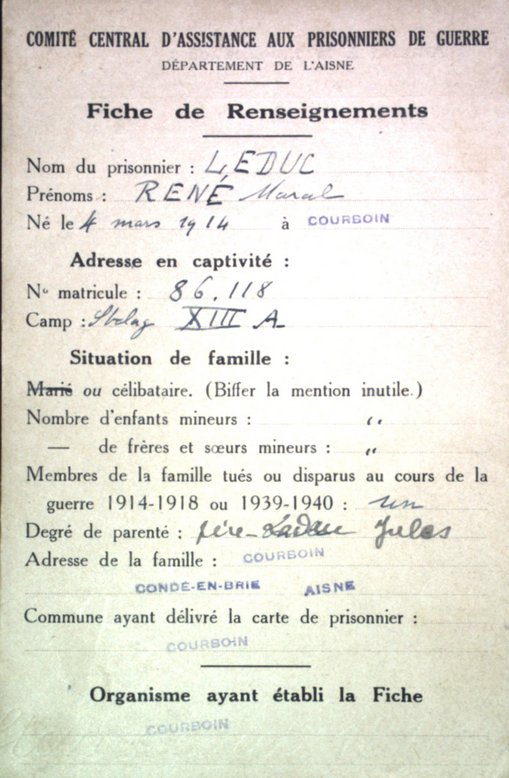 COMITÉ CENTRAL D'ASSISTANCE AUX PRISONNIERS DE GUERRE
DÉPARTEMENT DE L'AISNE
Fiche de Renseignements
Nom du prisonnier : LEDUC
Prénoms : RENÉ
Né le 4 mars 1914 à COURBOIN
Adresse en captivité :
N° matricule : 86.118
Camp : Stalag XIII A
Situation de famille :
Marié ou célibataire. (Biffer la mention inutile.)
Nombre d'enfants mineurs : "
— de frères et sœurs mineurs : "
Membres de la famille tués ou disparus au cours de la
guerre 1914-1918 ou 1939-1940 : un
Degré de parenté : père - Jules
Adresse de la famille : COURBOIN
CONDÉ-EN-BRIE AISNE
Commune ayant délivré la carte de prisonnier :
COURBOIN
Organisme ayant établi la Fiche
COURBOIN